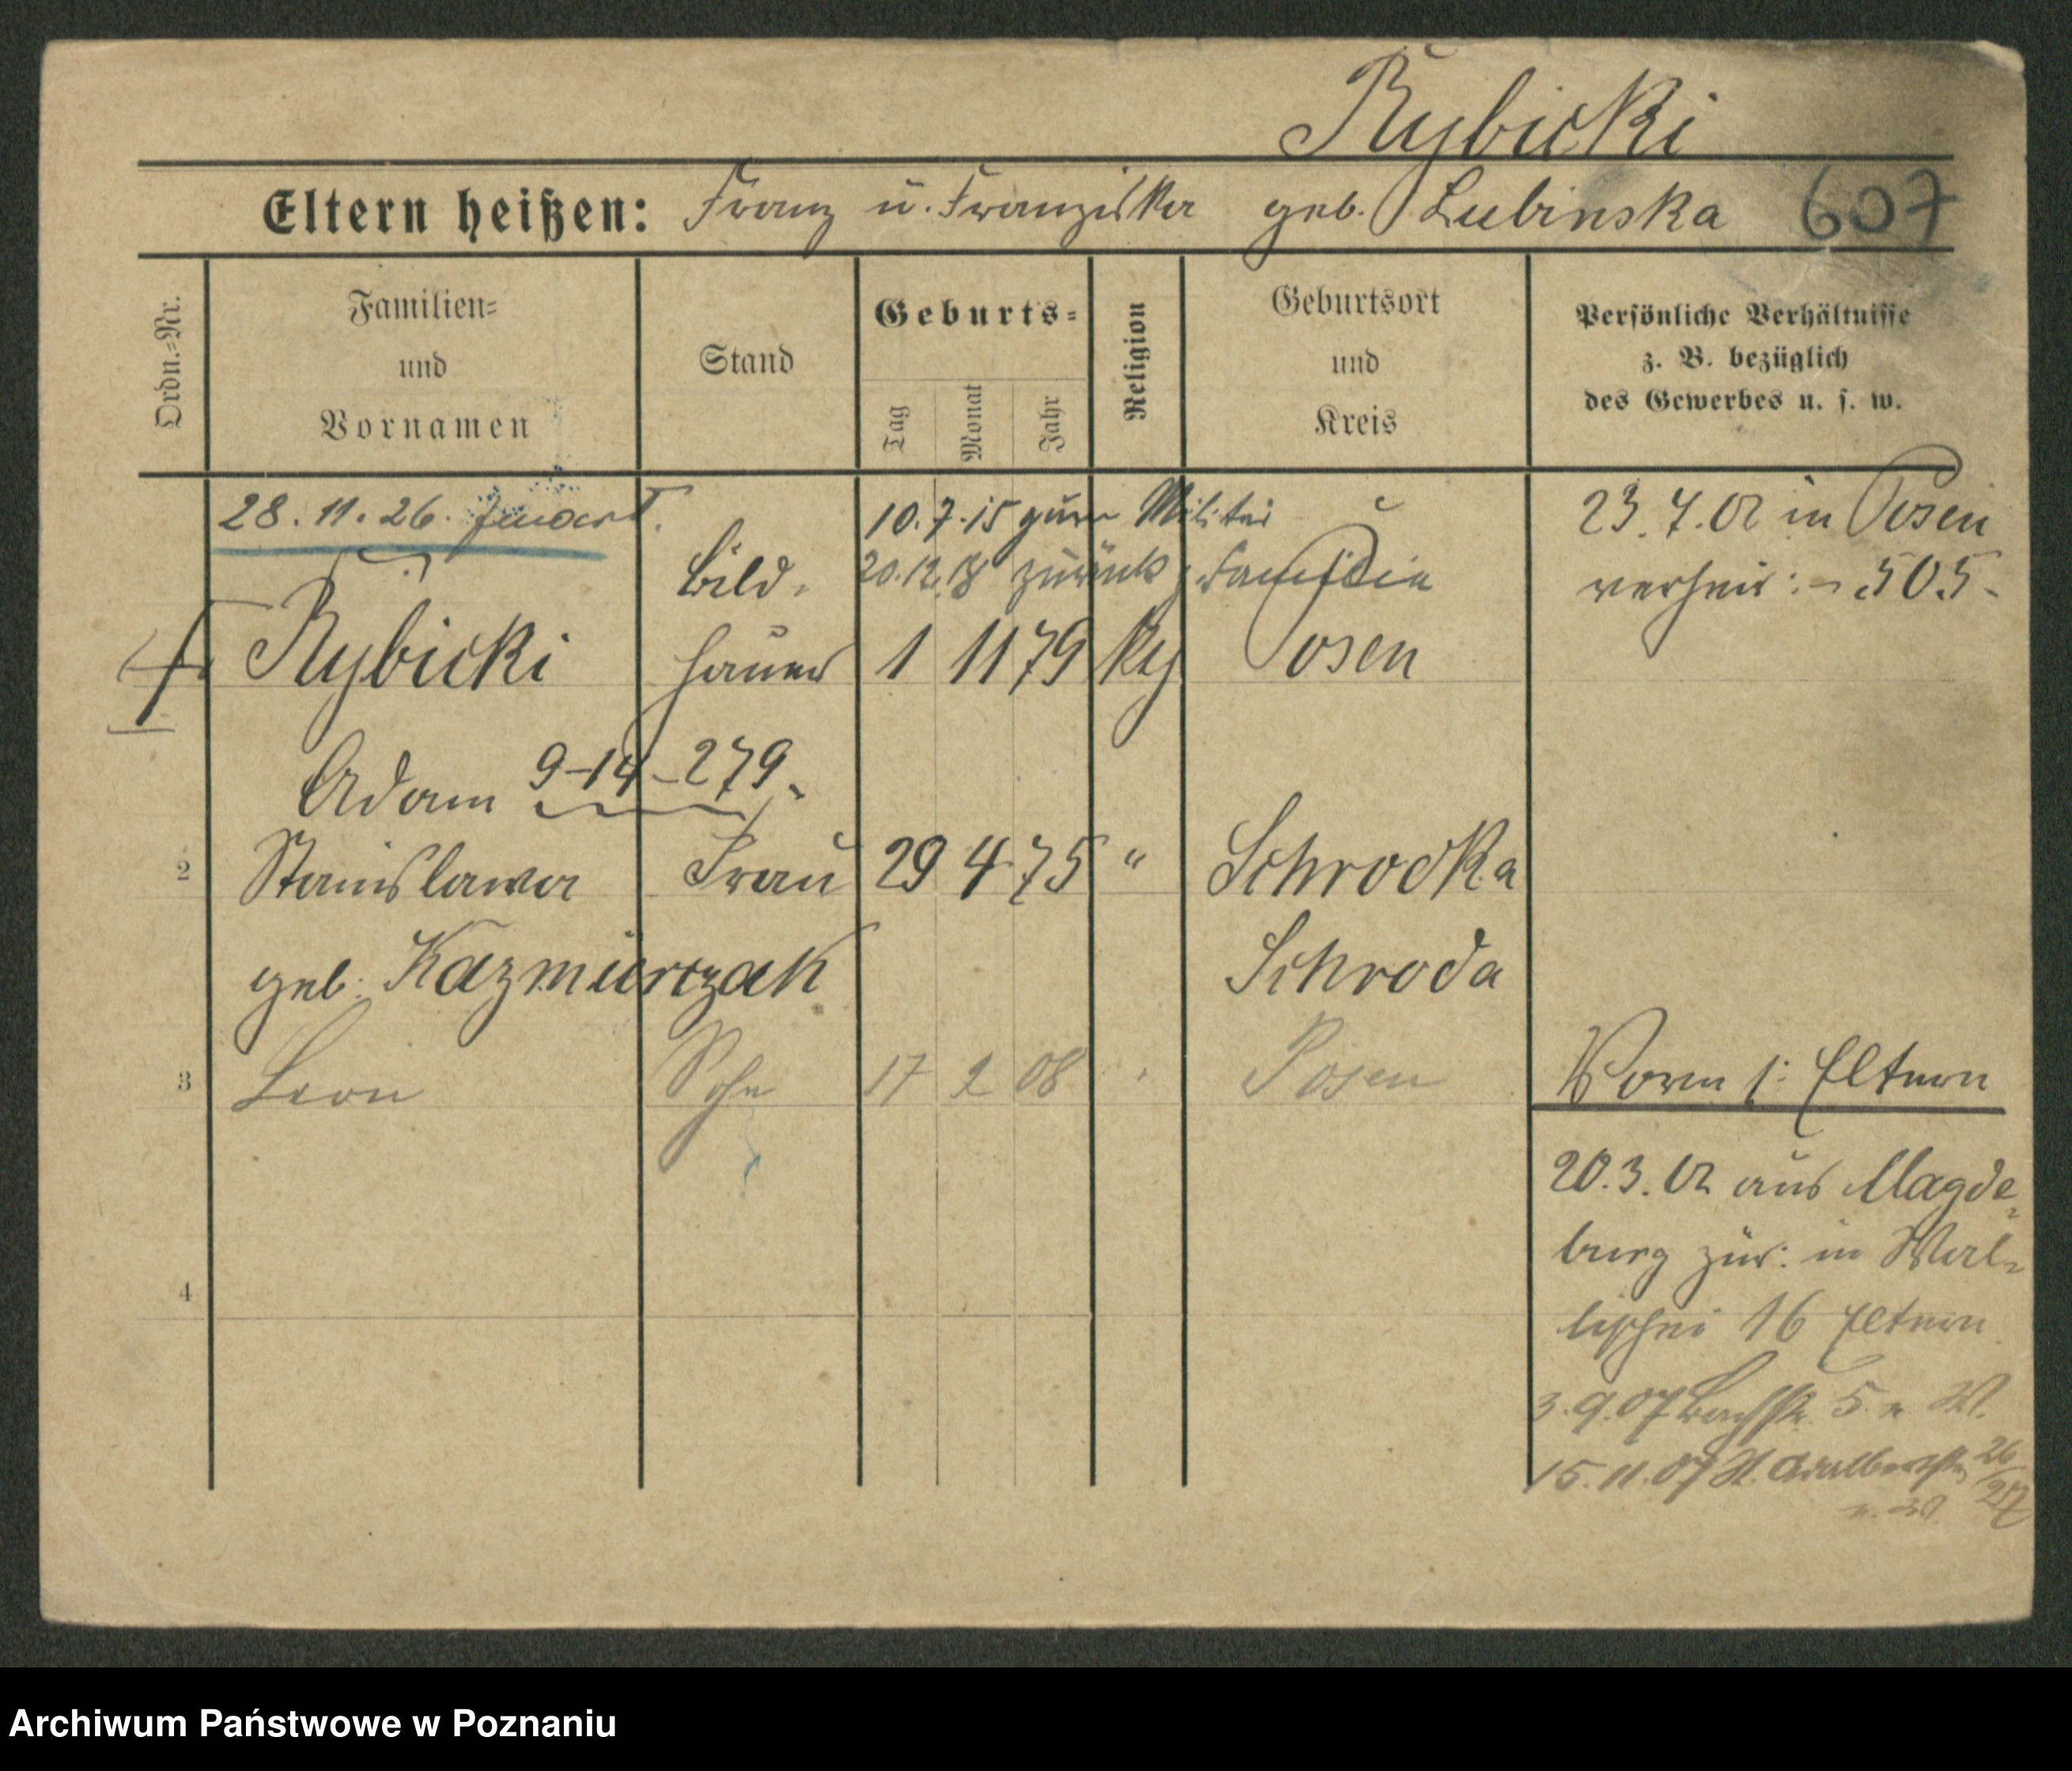 Rybicki
Eltern heißen: Franz u. Franziska geb. Lubinska 607
Ordn.-Nr.
Familien-
und
Vornamen
Stand
Geburts-
Tag
Monat
Jahr
Religion
Geburtsort
und
Kreis
Persönliche Verhältnisse
z. B. bezüglich
des Gewerbes u. s. w.
28. 11. 26.
10.7.15 zum Militär
20.12.18 zurück, Familie
23.7.02 in Posen
verheir: - 505-
Bild-
Rybicki hauer 1 11 79 Posen
Adam 9-14-279
2 Stanislawa Frau 29 4 75 " Schrodka
geb. Kazmierczak Schroda
3 Leon Sohn 17 2 08 Posen
Vorm s: Eltern
20.3.02 aus Magde-
burg zur: in Wal-
lischei 16 Eltern
4
3.9.07 Bachstr. 5 W.
15.11.07 St. Adalbertstr 26/27